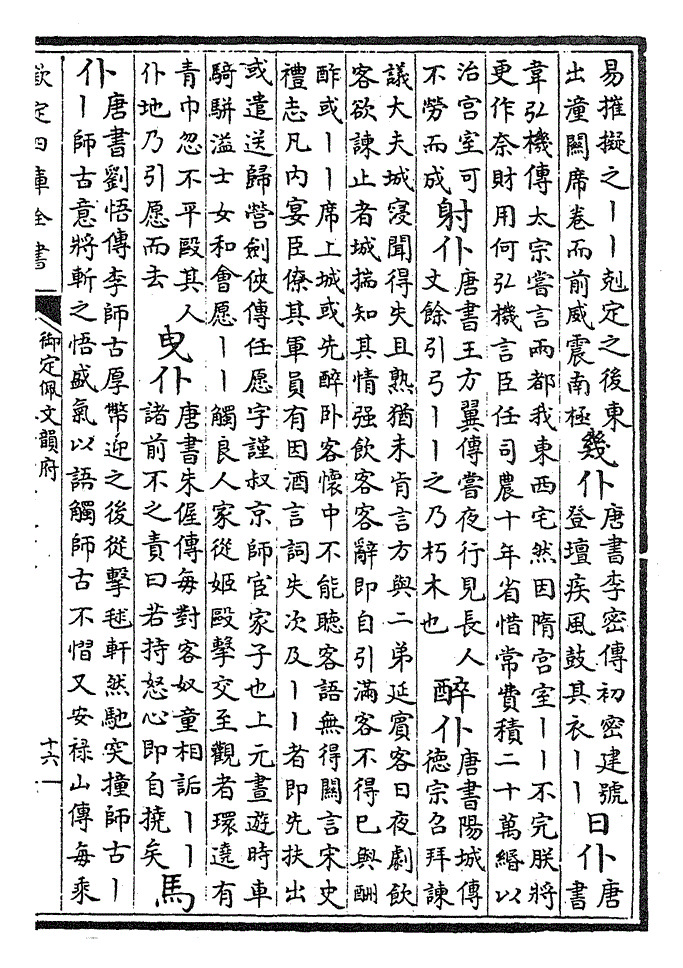 易摧擬之丨丨剋定之後東
出潼關席卷而前威震南極
幾仆
唐書李密傳初密建號
登壇疾風鼓其衣丨丨
日仆
唐
書
韋弘機傳太宗嘗言兩都我東西宅然因隋宮室丨丨不完朕將
更作奈財用何弘機言臣任司農十年省惜常費積二十萬緡以
治宮室可
不勞而成
射仆
唐書王方翼傳嘗夜行見長人
丈餘引弓丨丨之乃朽木也
醉仆
唐書陽城傳
德宗召拜諫
議大夫城寖聞得失且熟猶未肯言方與二弟延賓客日夜劇飲
客欲諫止者城揣知其情强飲客客辭即自引滿客不得已與酬
酢或丨丨席上城或先醉卧客懷中不能聽客語無得關言宋史
禮志凡內宴臣僚其軍員有因酒言詞失次及丨丨者即先扶出
或遣送歸營劍俠傳任愿字謹叔京師宦家子也上元晝遊時車
騎駢溢士女和會愿丨丨觸良人家從姬毆擊交至觀者環遶有
青巾忽不平毆其人
仆地乃引愿而去
曳仆
唐書朱偓傳每對客奴童相詬丨丨
諸前不之責曰若持怒心即自撓矣
馬
仆
唐書劉悟傳李師古厚幣迎之後從擊毬軒然馳突撞師古丨
丨師古意將斬之悟盛氣以語觸師古不慴又安祿山傳每乘
欽定四庫全書
御定佩文韻府
十六